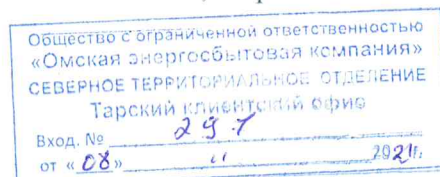 Общество с ограниченной ответственностью
«Омская энергосбытовая компания»
СЕВЕРНОЕ ТЕРРИТОРИАЛЬНОЕ ОТДЕЛЕНИЕ
Тарский клиентский офис
Вход. №
от «08» 11 2021г.